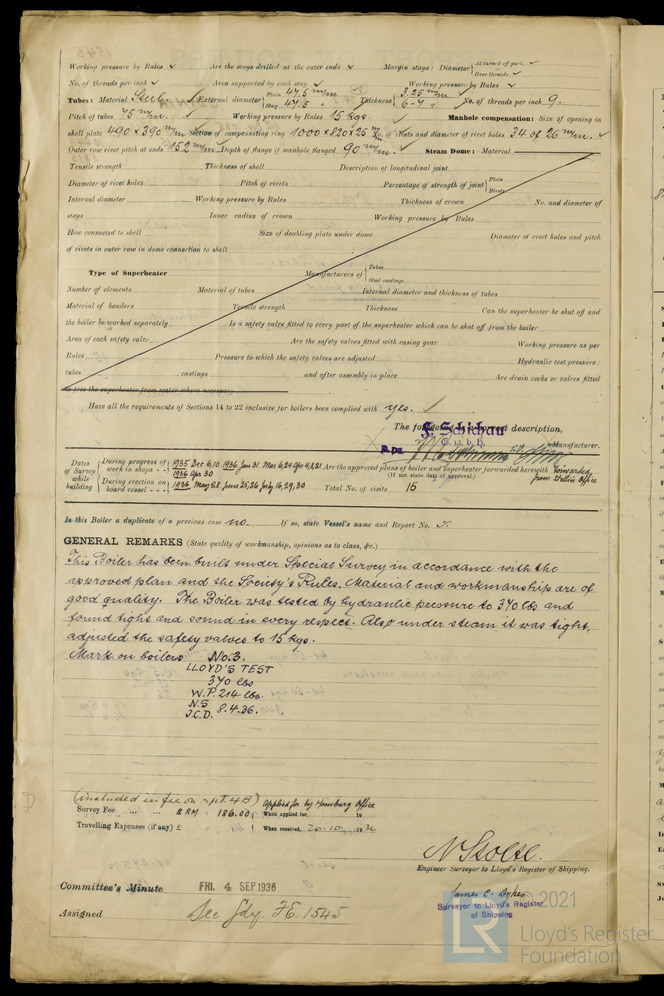 Working pressure by Rules ✓ Are the stays drilled at the outer ends ✓ Margin stays: Diameter { At turned off part, ✓ Over threads ✓
No. of threads per inch ✓ Area supported by each stay ✓ Working pressure by Rules ✓
Tubes: Material Steel ✓ External diameter { Plain 47.5 m/m Stay 47.5 " Thickness { 3.25 m/m ✓ 6-7 " No. of threads per inch 9.
Pitch of tubes 75 m/m. ✓ Working pressure by Rules 15 kgs. Manhole compensation: Size of opening in
shell plate 490 x 390 m/m Section of compensating ring 1000 x 820 x 25 m/m No. of rivets and diameter of rivet holes 34 of 26 m/m. ✓
Outer row rivet pitch at ends 152 m/m Depth of flange if manhole flanged 90 m/m. Steam Dome: Material
Tensile strength Thickness of shell Description of longitudinal joint
Diameter of rivet holes Pitch of rivets Percentage of strength of joint { Plate Rivets
Internal diameter Working pressure by Rules Thickness of crown No. and diameter of
stays Inner radius of crown Working pressure by Rules
How connected to shell Size of doubling plate under dome Diameter of rivet holes and pitch
of rivets in outer row in dome connection to shell
Type of Superheater Manufacturers of { Tubes Steel castings
Number of elements Material of tubes Internal diameter and thickness of tubes
Material of headers Tensile strength Thickness Can the superheater be shut off and
the boiler be worked separately Is a safety valve fitted to every part of the superheater which can be shut off from the boiler
Area of each safety valve Are the safety valves fitted with easing gear Working pressure as per
Rules Pressure to which the safety valves are adjusted Hydraulic test pressure:
tubes castings and after assembly in place Are drain cocks or valves fitted
to free the superheater from water where necessary
Have all the requirements of Sections 14 to 22 inclusive for boilers been complied with yes. ✓
The foregoing is a correct description,
F. Schichau
G.m.b.H.
Manufacturer.
Dates of Survey while building { During progress of work in shops - - 1935 Dec 6,10 1936 Jan 31 Mar 6,24 Apr 4,8,21 1936 Apr 30 Are the approved plans of boiler and superheater forwarded herewith forwarded from Stettin Office
(If not state date of approval.)
During erection on board vessel - - - 1936 May 28 June 25,26 July 16,29,30 Total No. of visits 15
Is this Boiler a duplicate of a previous case no. If so, state Vessel's name and Report No.
GENERAL REMARKS (State quality of workmanship, opinions as to class, &c.)
This Boiler has been built under Special Survey in accordance with the
approved plan and the Society's Rules. Material and workmanship are of
good quality. The Boiler was tested by hydraulic pressure to 370 lbs and
found tight and sound in every respect. Also under steam it was tight,
adjusted the safety valves to 15 kgs.
Mark on boilers No. 3.
LLOYD'S TEST
370 lbs
W.P. 214 lbs.
N.S
J.C.D. 8.4.36.
(included in fee on rpt. 4B) Applied for by Hamburg Office
Survey Fee ... ... RM : 186.00 : When applied for, 19
Travelling Expenses (if any) £ : : When received, 20.10. 1936
N Stolte.
Engineer Surveyor to Lloyd's Register of Shipping.
Committee's Minute FRI. 4 SEP 1936
James C. Dykes
Surveyor to Lloyd's Register
of Shipping
Assigned See Gdy. F.E. 1545
© 2021
LR
Lloyd's Register
Foundation